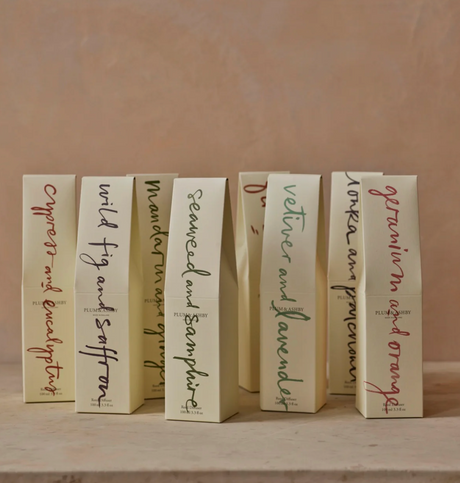 cypress and eucalyptus
wild fig and saffron
PLUM & ASHBY
mandarin and ginger
seaweed and samphire
PLUM & ASHBY
vetiver and lavender
PLUM & ASHBY
tonka and patchouli
geranium and orange
PLUM & ASHBY